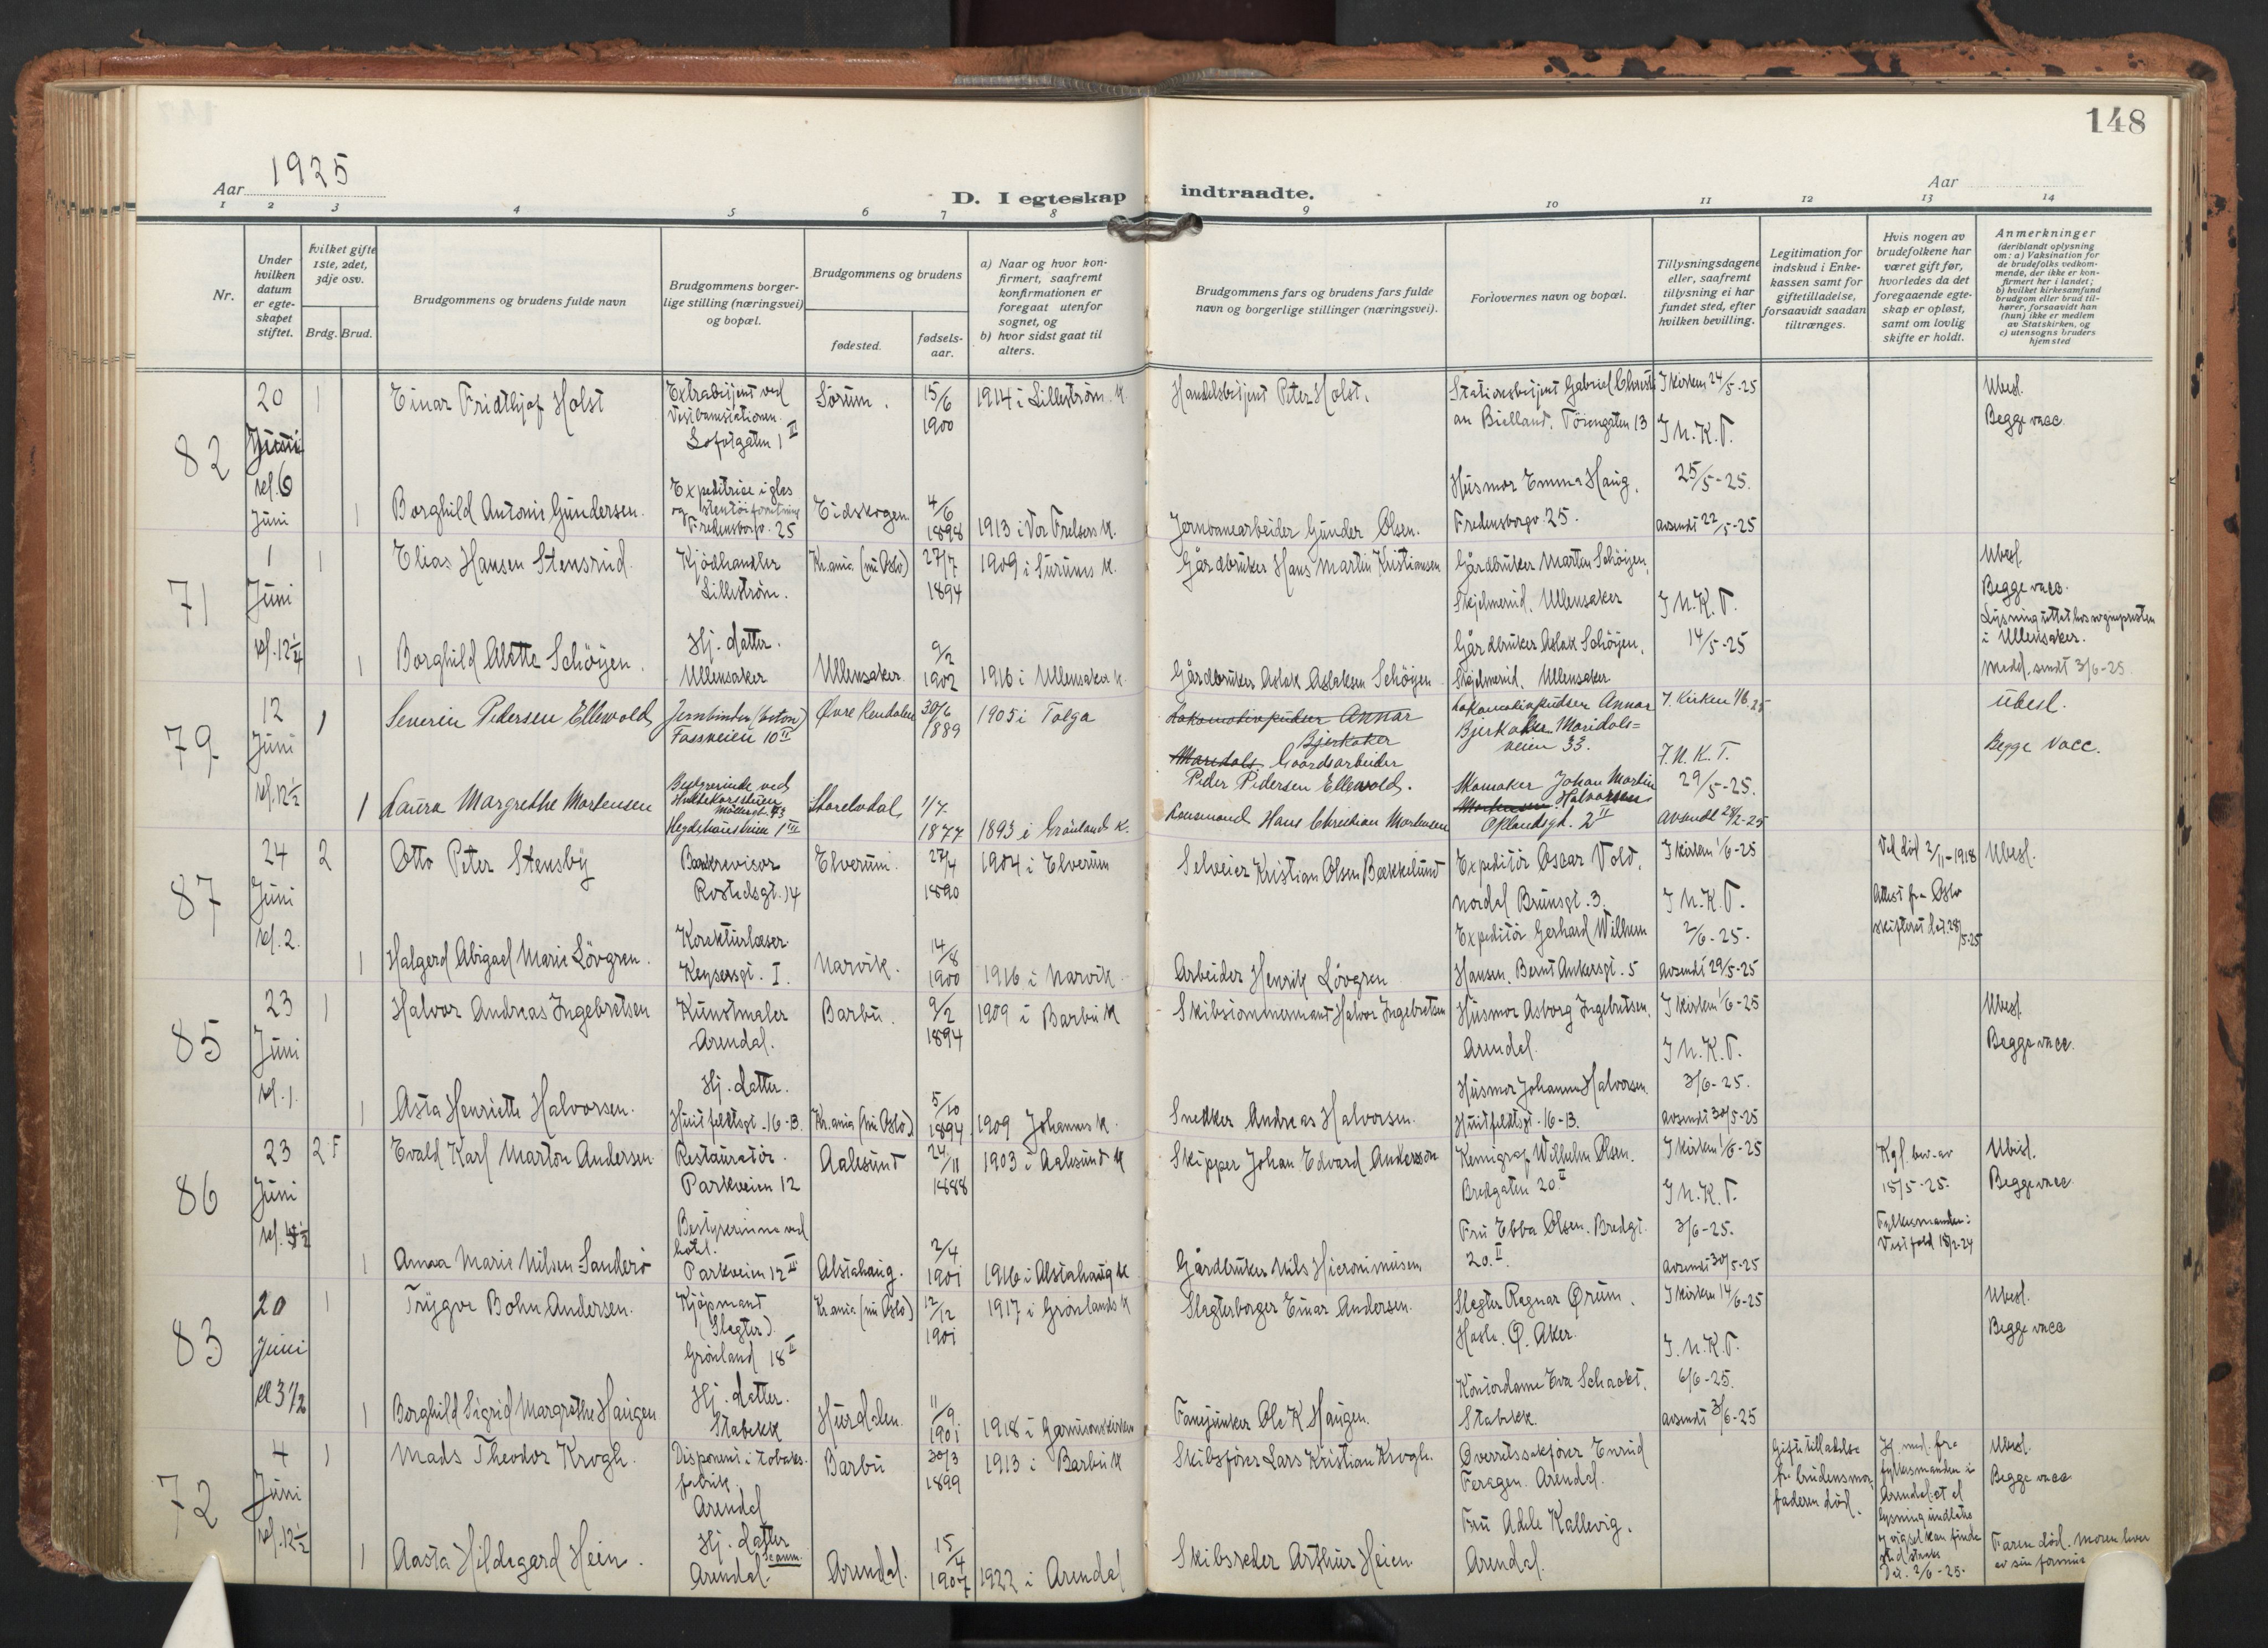 148
Aar 1925
D. I egteskap indtraadte.
Aar
1 2 3 4 5 6 7 8 9 10 11 12 13 14
Nr.
Under hvilken datum er egteskapet stiftet.
Hvilket gifte 1ste, 2det, 3dje osv.
Brdg. Brud.
Brudgommens og brudens fulde navn
Brudgommens borgerlige stilling (næringsvei) og bopæl.
Brudgommens og brudens
fødested.
fødselsaar.
a) Naar og hvor konfirmert, saafremt konfirmationen er foregaat utenfor sognet, og
b) hvor sidst gaat til alters.
Brudgommens fars og brudens fars fulde navn og borgerlige stillinger (næringsvei).
Forlovernes navn og bopæl.
Tillysningsdagene eller, saafremt tillysning ei har fundet sted, efter hvilken bevilling.
Legitimation for indskud i Enkekassen samt for giftetilladelse, forsaavidt saadan tiltrænges.
Hvis nogen av brudefolkene har været gift før, hvorledes da det foregaaende egteskap er opløst, samt om lovlig skifte er holdt.
Anmerkninger
(deriblandt oplysning om: a) Vaksination for de brudefolks vedkommende, der ikke er konfirmert her i landet; b) hvilket kirkesamfund brudgom eller brud tilhører, forsaavidt han (hun) ikke er medlem av Statskirken, og c) utensogns bruders hjemsted
82
20 Juni kl. 6 Juni
1 Einar Fridthjof Holst
Extrabetjent ved Vestbanestationen. Sofolgaten 1 III
Sørum. 15/6 1900
1914 i Lillestrøm K.
Handelsbetjent Peter Holst.
Stationsbetjent Gabriel Christian Bielland, Töiengaten 13
I kirken 24/5-25
I N.K.T. 25/5-25.
Ubesl. Begge vacc.
1 Borghild Antonie Gundersen.
Expeditrice i glas og stentöiforretning Fredensborgv. 25
Eidskogen. 4/6 1898
1913 i Vor Frelsers K.
Jernbanearbeider Gunder Olsen.
Husmor Emma Haug, Fredensborgv. 25.
avsendt 22/5-25
71
1 Juni kl. 12 1/4
1 Elias Hansen Stensrud.
Kjödhandler Lilleström.
Kr.ania (nu Oslo) 27/7 1894
1909 i Sörums K.
Gårdbruker Hans Martin Kristiansen
Gårdbruker Marten Schöyen, Skjelmerud, Ullensaker
I N.K.T. 14/5-25
Ubesl. Begge vacc.
Lysning uttat hos sognepresten i Ullensaker.
Medd. sendt 3/6-25.
1 Borghild Alette Schöyen.
Hj. datter. Ullensaker
Ullensaker 9/2 1902
1916 i Ullensaker K.
Gårdbruker Aslak Aslaksen Schöyen
Gårdbruker Aslak Schöyen, Skjelmerud, Ullensaker
79
12 Juni kl. 12 1/2
1 Severin Pedersen Ellevold
Jernbinder (beton) Fossveien 10 II
Øvre Rendalen 30/6 1889
1905 i Tolga
Lokomotivpudser Annar Bjerkaker
Maridals Gaardsarbeider
Peder Pedersen Ellevold.
Lokomotivpudser Annar Bjerkaker Maridalsveien 33.
I Kirken 1/6 25
I.N.K.T. 29/5-25.
Ubesl. Begge vacc.
1 Laura Margrethe Mortensen
Storelvdal 1/7. 1877
1893 i Grønland K.
Lensmand Hans Christian Mortensen
Skomaker Johan Martin Halvorsen Oplandsgt. 2 II
87
24 Juni kl. 2.
2 Otto Peter Stensby
Bankrevisor Rostedsgt. 14
Elverum. 27/4 1890
1904 i Elverum
Selveier Kristian Olsen Bækkelund
Expeditör Oscar Vold, Nordal Brunsgt. 3.
I kirken 1/6-25
I N.K.T. 2/6-25.
Ved död 2/11-1918
Attest fra Oslo skifteret dat. 28/5-25
Ubesl.
1 Halgerd Abigael Marie Lövgren.
Korekturlæser. Keysersgt. I.
Narvik. 14/8 1900
1916 i Narvik.
Arbeider Henrik Lövgren
Expeditör Gerhard Wilhelm Hansen, Bernt Ankersgt. 5
avsendt 29/5-25
85
23 Juni kl. 1.
1 Halvor Andreas Ingebretsen
Kunstmaler Arendal.
Barbu. 9/2 1894
1909 i Barbu K
Skibstömmermand Halvor Ingebretsen
Husmor Asborg Ingebretsen, Arendal.
I kirken 1/6-25
I N.K.T. 3/6-25.
Ubesl. Begge vacc.
1 Asta Henriette Halvorsen.
Hj. datter. Huitfeldtsgt. 16-B.
Kr.ania (nu Oslo) 5/10 1894
1909 Johannes K.
Snekker Andreas Halvorsen.
Husmor Johanne Halvorsen. Huitfeldtsgt. 16-B.
avsendt 30/5-25
86
23 Juni
2 F Evald Karl Marton Andersen
Restauratör. Parkveien 12
Aalesund 24/11 1888
1903 i Aalesund K
Skipper Johan Edvard Andersen
Kemigraf Wilhelm Olsen. Bredgaten 20 II
I kirken 1/6-25
I N.K.T. 3/6-25.
Kgl. bev. av 15/5-25.
Fylkesmanden i Vestfold 18/2-24
Ubesl. Begge vacc.
1 Anna Marie Nilsen Sanderö
Bestyrerinne ved hotel. Parkveien 12 III
Alstahaug. 2/4 1901
1916 i Alstahaug K
Gårdbruker Nils Hieronimusen
Fru Ebba Olsen. Bredgt. 20. II
avsendt 30/5-25
83
20 Juni kl 3 1/2
1 Trygve Bohn Andersen.
Kjöpmand (Slagter) Grönland 18 II
Kr.ania (nu Oslo) 12/12 1901
1917 i Grönlands K
Slagterborger Einar Andersen.
Slagter Ragnar Ørum, Hasle. Ø. Aker.
I kirken 14/6-25
I.N.K.T. 6/6-25.
Ubesl. Begge vacc
1 Borghild Sigrid Margrethe Haugen
Hj. datter. Stabekk
Hurdalen. 11/9 1901
1918 i Garnisonskirken
Fanejunker Ole K Haugen.
Kontordame Eva Schackt. Stabekk.
avsendt 3/6-25
72
4 Juni kl. 12 1/2
1 Mads Theodor Krogh.
Disponent i tobaksfabrik. Arendal
Barbu 30/3 1899
1913 i Barbu K
Skibsförer Lars Kristian Krogh.
Overretssakförer Enrud Feragen. Arendal.
Giftetilladelse fra brudens mor, faderen död.
Ubesl. Begge vacc
1 Aasta Hildegard Hein.
Hj. datter Arendal.
Arendal. 15/4 1907
1922 i Arendal
Skibsreder Arthur Heien
Fru Adele Kallevig. Arendal.
Faren död. Moren lever av sin formue